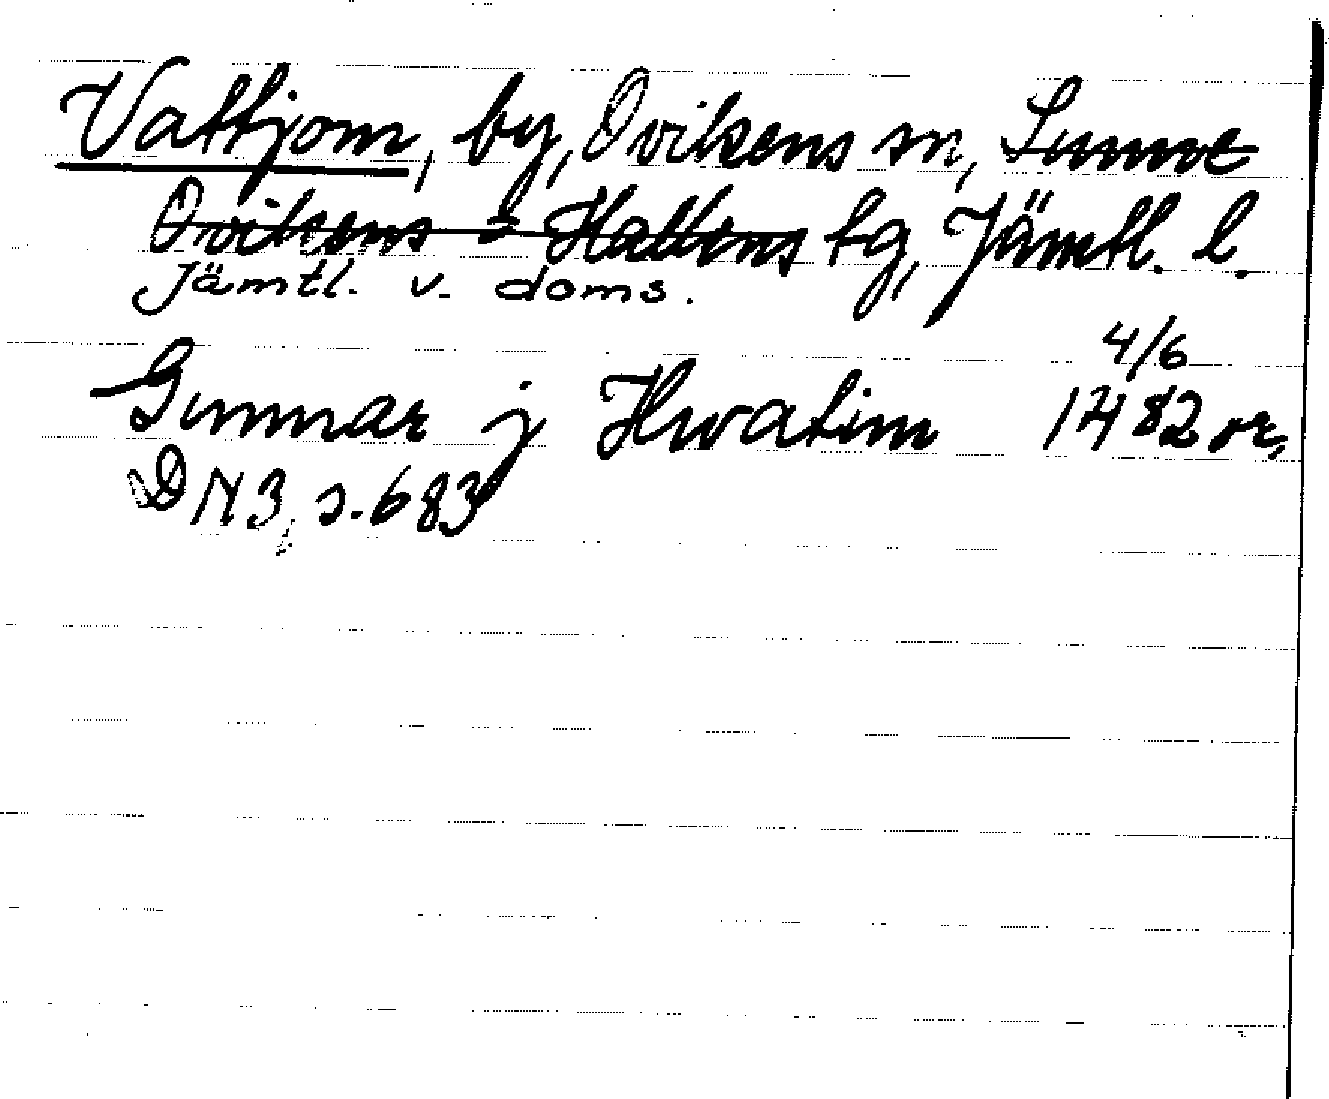 Vattjom, by, Ovikens sn, Sunne
Ovikens o Hallens tg, Jämtl. l.
Jämtl. v. doms.
4/6
Gunnar j Hwatim 1482 or,
DN 3, s. 683